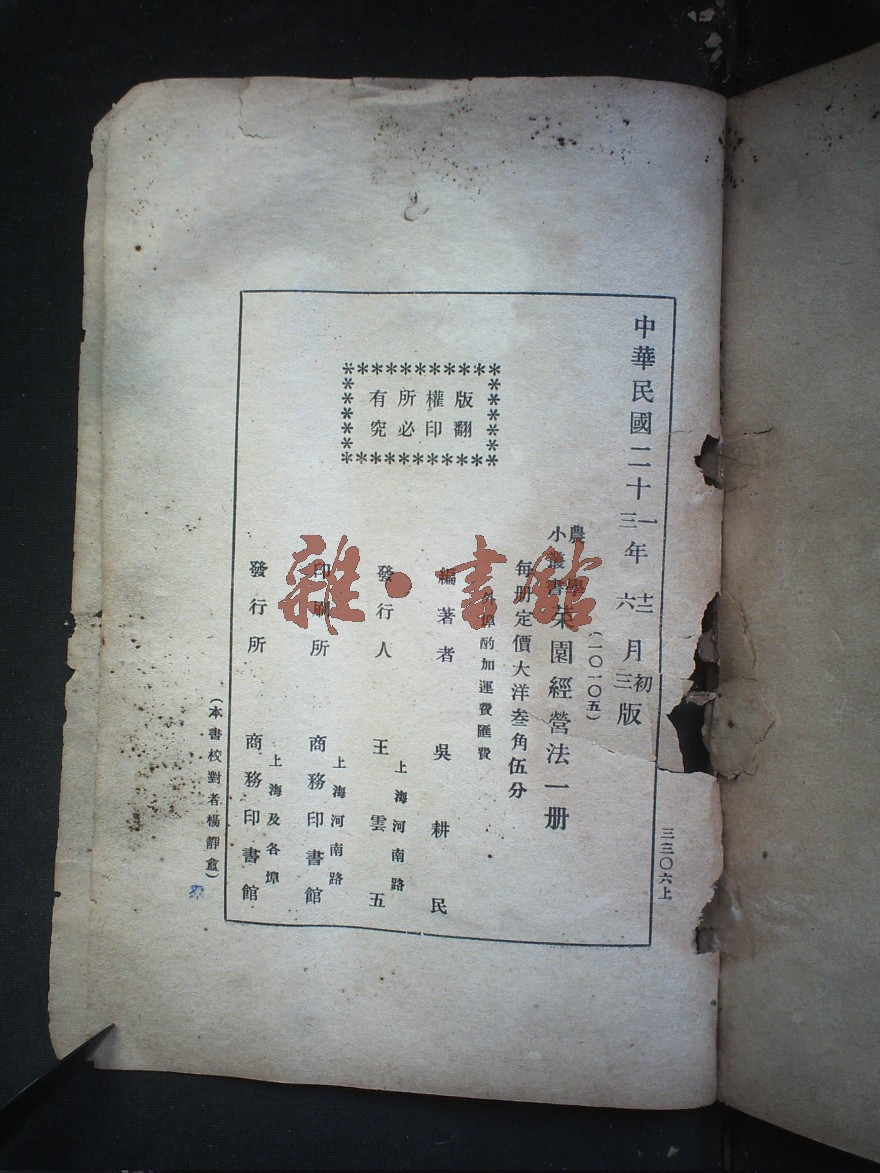 三三〇六上
中華民國二十一三年十二六月初三版
(一〇一〇五)
農學小叢書菜園經營法一册
每册定價大洋叁角伍分
外埠酌加運費匯費
版權所有
翻印必究
編著者 吳耕民
發行人 王雲五
上海河南路
印刷所 商務印書館
上海河南路
發行所 商務印書館
上海及各埠
(本書校對者楊靜盦)
雜·書館